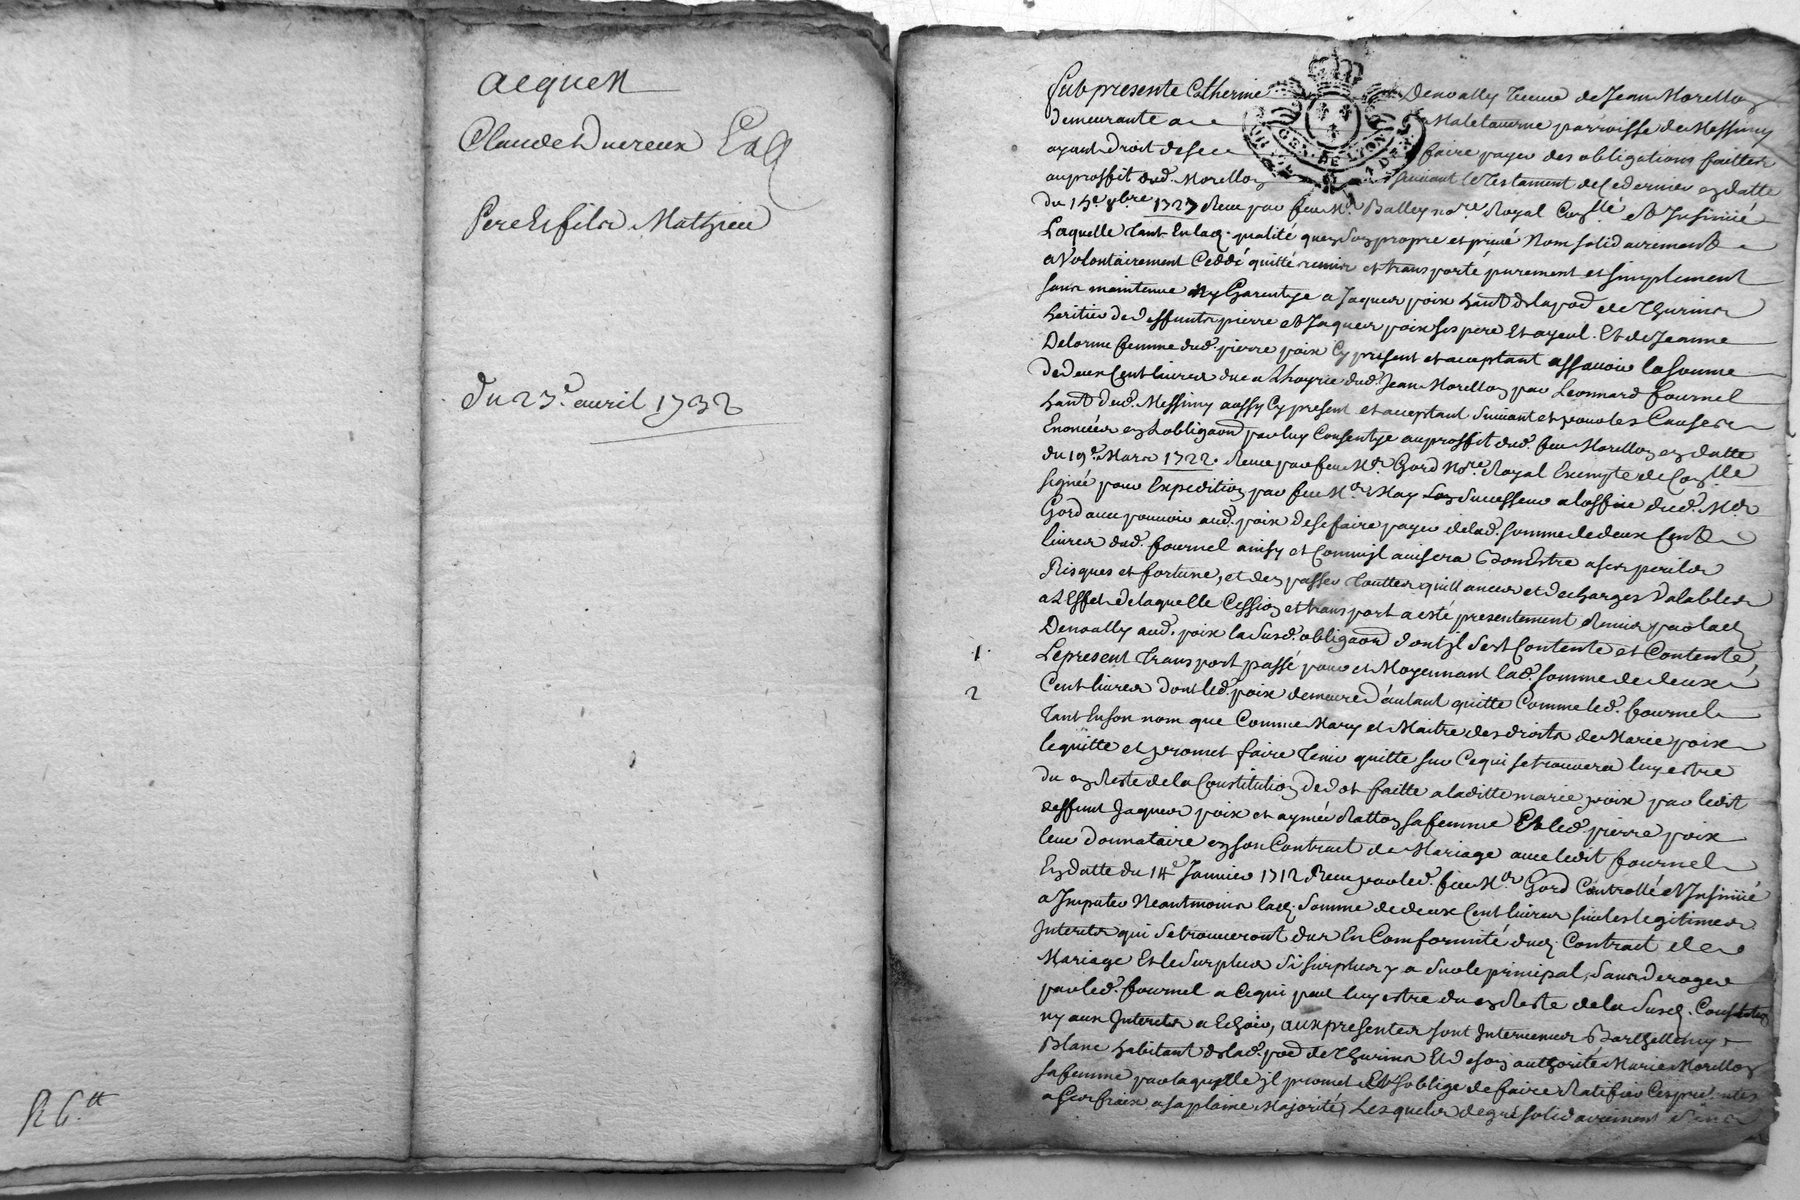 acquest
Claude Ducreux
Pere et fils Mathieu
du 23e. avril 1732
R 6.tt
Fut presente Catherine Denoally veuve de Jean Morellon
demeurante a Maletaverne parroisse de Messimy
ayant droit de se faire payer des obligations faittes
au proffit dud. Morellon suivant le Testament de ce dernier en datte
du 1727 Receu par feu Me. Balley nore. Royal Conllé et Insinué
Laquelle tant en lad. qualité que de son propre et privé Nom solidairement
a volontairement Ceddé quitté remis et transporté purement et simplement
sans maintenue ny Garentye a Jaques poix habt. de la pod de Thurins
heritier de deffunts pierre et Jaques poix ses pere Et ayeul. Et de Jeanne
Delorme femme dud. pierre poix Cy present et acceptant assavoir la somme
de deux Cent livres due a l'hoyrie dud. Jean Morellon par Leonnard fournel
habt. dud. Messimy aussy Cy present et acceptant suivant et pour les Causes
Enoncées en l'obligaon par luy Consentye au proffit dud. feu Morellon en datte
du 19e. Mars 1722. Receue par feu Me. Gord Nore. Royal Exempte de Conlle
signée pour Expedition par feu Me. May son successeur a l'office dud. Me.
Gord avec pouvoir aud. poix de se faire payer de lad. somme de deux Cent
livres dud. fournel ainsy et Comm'il avisera bon Estre a ses perils
Risques et fortune, et d'en passer Touttes quittances et decharges Valables
a l'Effet de laquelle Cession et transport a esté presentement Remis par lad.
Denoally aud. poix la susd. obligaon dont il s'est Contenté et Contente
1. Le present transport passé pour et Moyennant lad. somme de deux
2 Cent livres dont led. poix demeure d'autant quitte Comme led. fournel
tant En son nom que Comme Mary et Maitre des droits de Marie poix
le quitte et promet faire tenir quitte sur Ce qui se trouvera luy estre
du en Reste de la Constitution de dot faitte a laditte marie poix par ledit
deffunt Jaques poix et aymée Ratton sa femme Et led. pierre poix
leur donnataire en son Contract de Mariage avec ledit fournel
En datte du 14e Janvier 1712 Receu par led. feu Me. Gord Controllé et Insinué
a Imputer Neantmoins lad. somme de deux Cent livres sur les legitimes
Interets qui se trouveront dus En Comformité dud. Contract de
Mariage Et le surplus si surplus y a sur le principal, sans deroger
par led. fournel a Ce qui peut luy estre du en Reste de la susd. Constution
ny aux Interets a Echoir, aux presentes sont Intervenus Barthellemy
Blanc habitant de lad. pod de Thurins Et de son authorité Marie Morellon
sa femme par laquelle il promet Et s'oblige de faire Ratifier Ces presentes
a ses fraix a sa plaine Majorité, Lesquels de gré solidairement